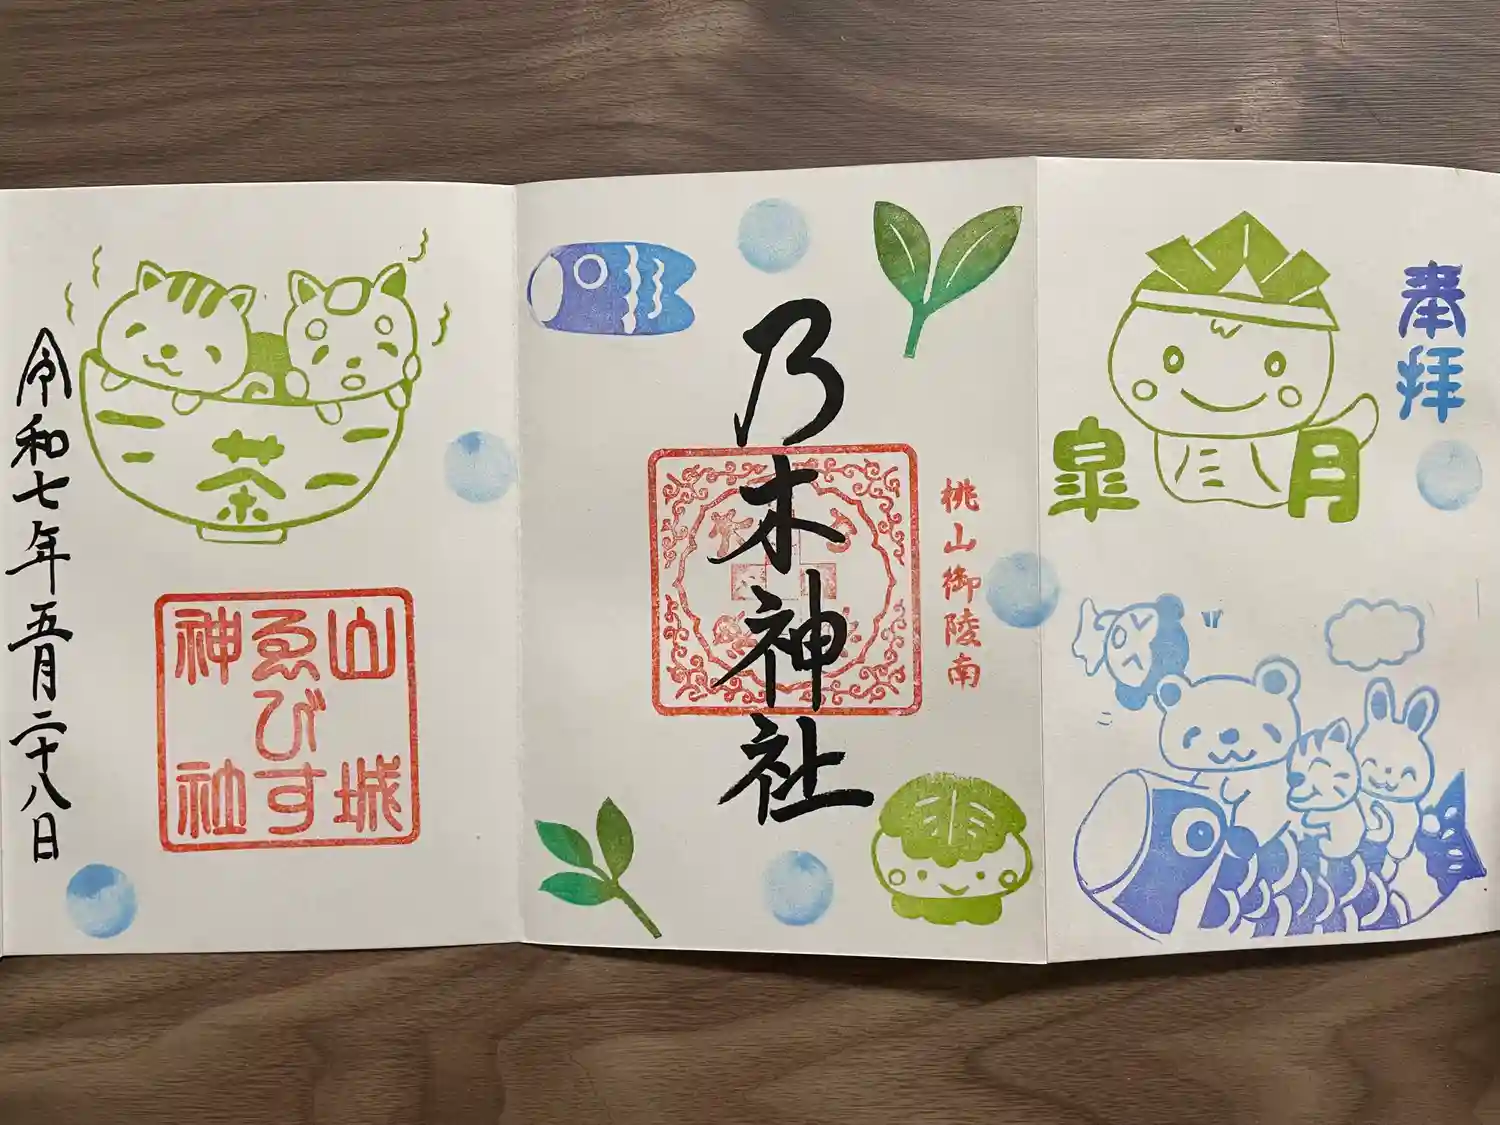 奉拝
皐月
桃山御陵南
乃木神社
茶
山城
ゑびす
神社
令和七年五月二十八日